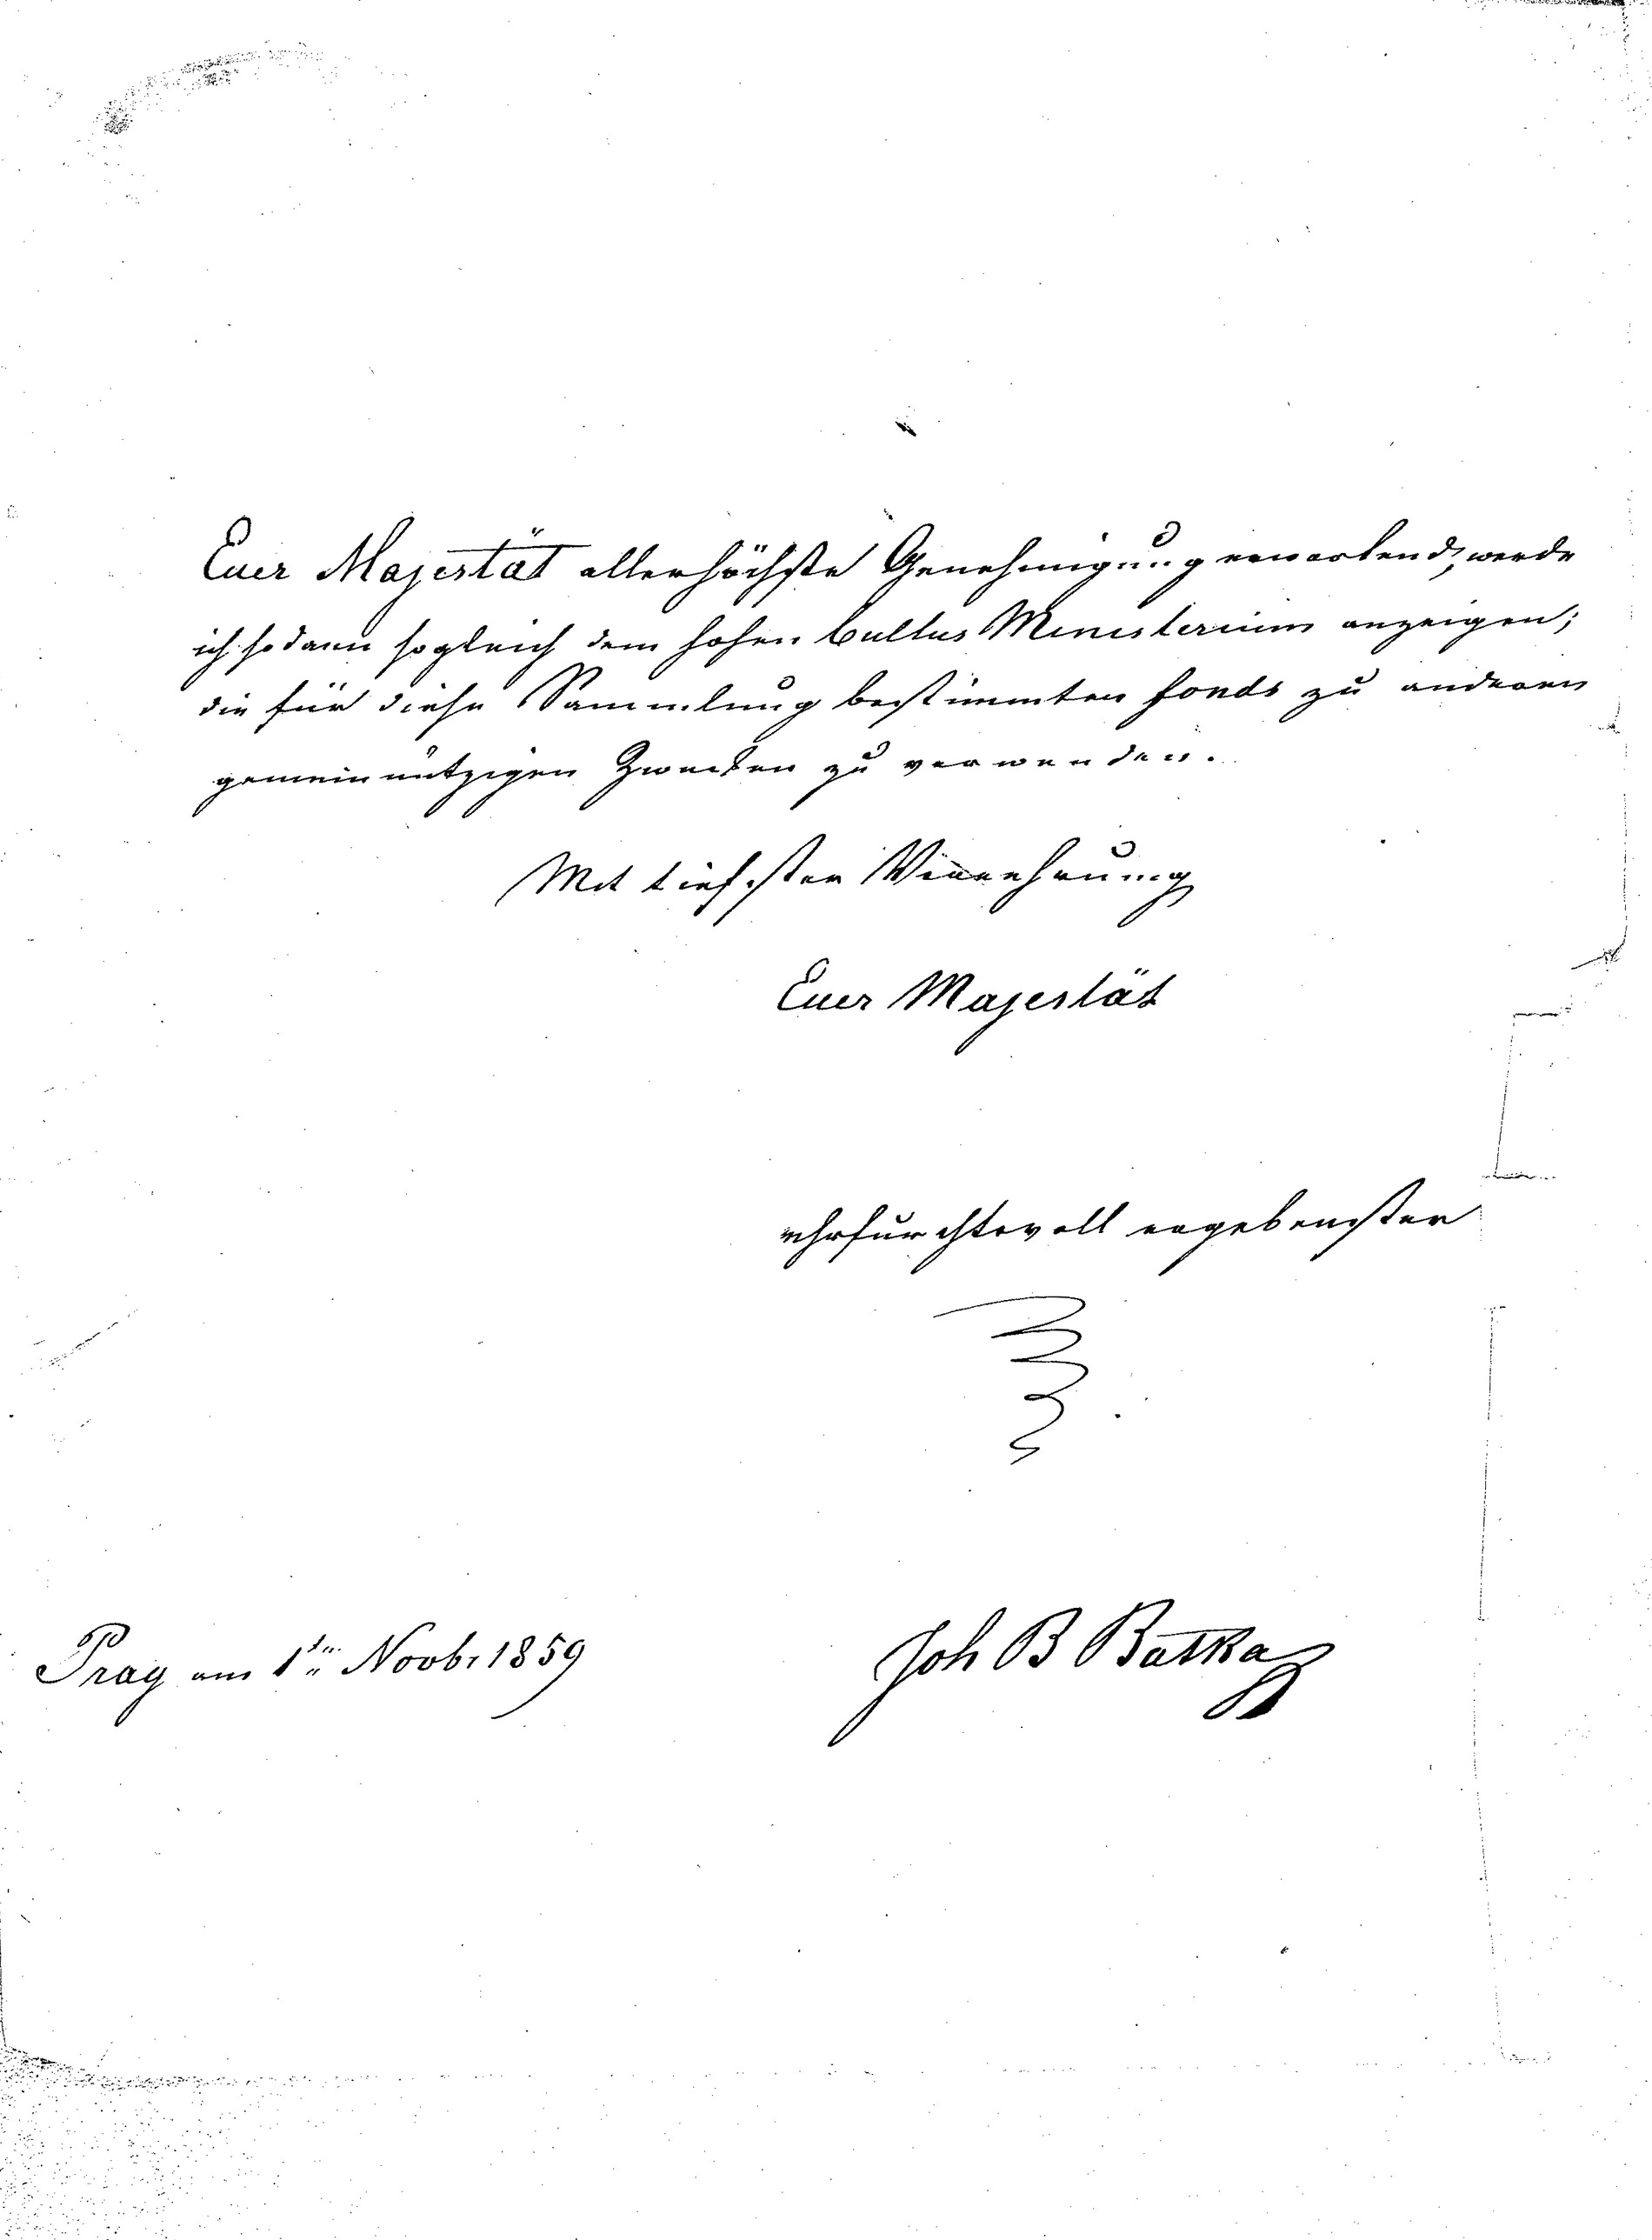 Euer Majestät allerhöchste Genehmigung erwartend, werde
ich sodann sogleich dem hohen Cultus Ministerium anzeigen;
die für diese Sammlung bestimmten fonds zu anderen
gemeinnützigen Zwecken zu verwenden.
Mit tiefster Verehrung
Euer Majestät
ehrfurchtsvoll ergebenster
Prag am 1ten Novbr 1859
Joh B Batka